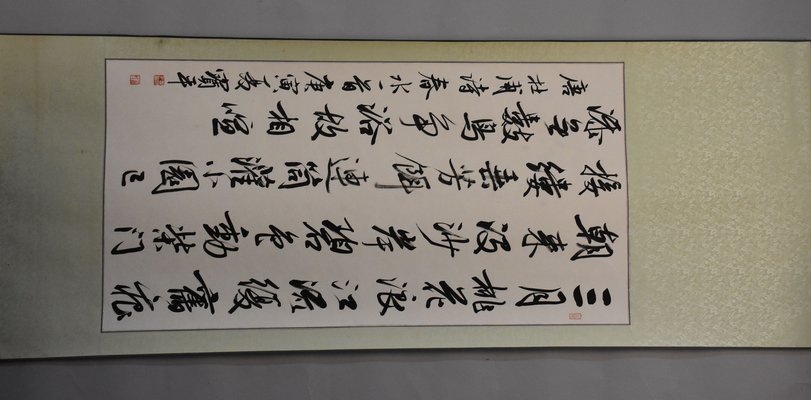 三月桃花浪江流復舊痕
朝來沒沙岸碧色動柴門
接縷垂芳餌連筒灌小園已
添無數鳥爭浴故相喧
唐杜甫詩春水一首庚寅夏寶平